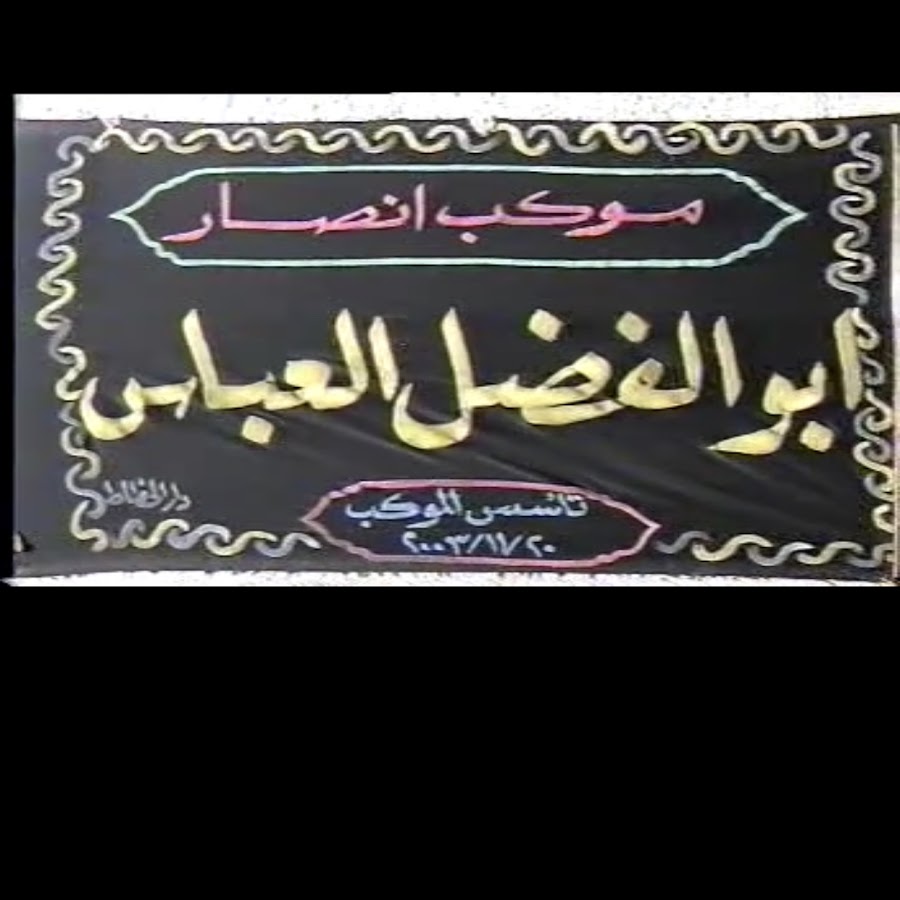 موكب انصار
ابو الفضل العباس
تائسس الموكب
٢٠٠٣/١١/٢٠
دار الخطاط